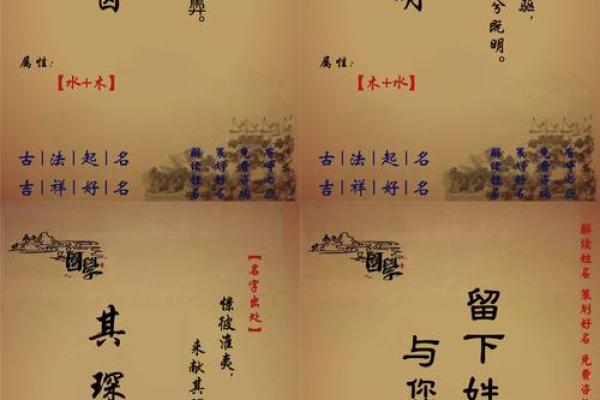 属性：
【水+木】
古|法|起|名
吉|祥|好|名
免费咨询
策划好名
解读姓名
明
驱，
兮既明。
属性：
【木+水】
古|法|起|名
吉|祥|好|名
免费咨询
策划好名
解读姓名
国学
【名字出处】
憬彼淮夷，
来献其
其琛
国学
解读姓名 策划好名 免费
留下姓
与你